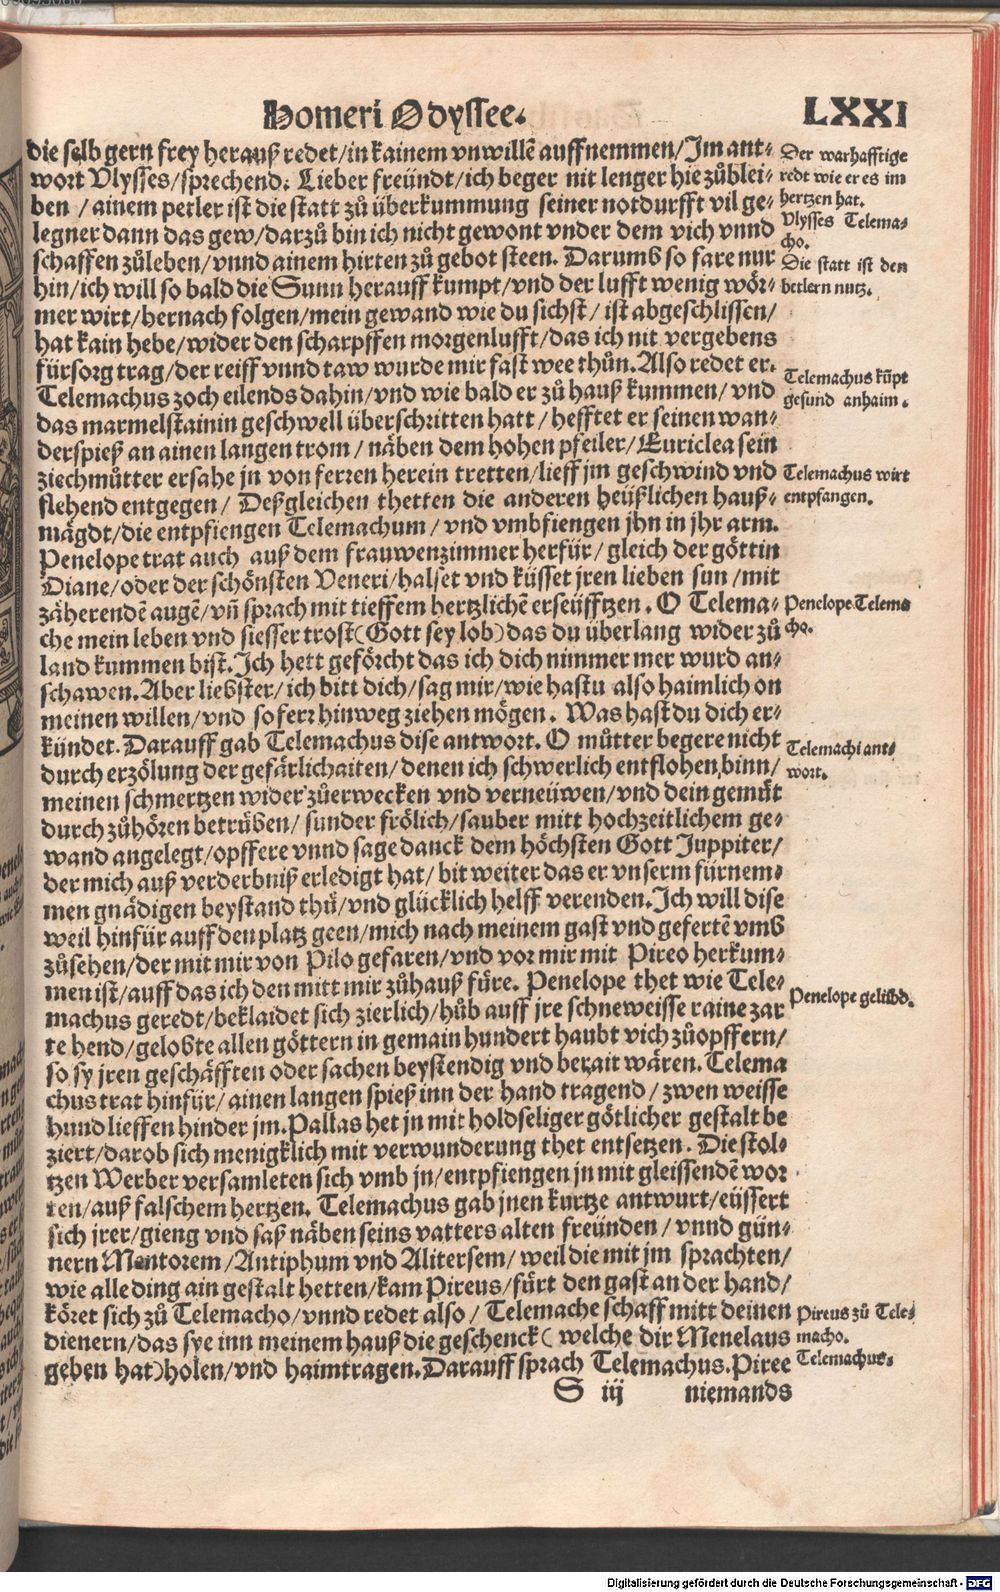 Homeri Odyssee.
LXXI
die selb gern frey herauß redet/in kainem vnwillē auffnemmen/Jm ant⸗
wort Vlysses/sprechend: Lieber freündt/ich beger nit lenger hie zůblei⸗
ben /ainem petler ist die statt zů überkummung seiner notdurfft vil ge⸗
legner dann das gew/darzů bin ich nicht gewont vnder dem vich vnnd
schaffen zůleben/vnnd ainem hirten zů gebot steen. Darumb so fare nur
hin/ich will so bald die Sunn herauff kumpt/vnd der lufft wenig wör⸗
mer wirt/hernach folgen/mein gewand wie du sichst/ ist abgeschlissen/
hat kain hebe/wider den scharpffen morgenlufft/das ich nit vergebens
fürsorg trag/der reiff vnnd taw wurde mir fast wee thůn. Also redet er.
Telemachus zoch eilends dahin/vnd wie bald er zů hauß kummen/vnd
das marmelstainin geschwell überschritten hatt/hefftet er seinen wan⸗
derspieß an ainen langen trom/näben dem hohen pfeiler/Euriclea sein
ziechmůtter ersahe jn von ferzen herein tretten/lieff jm geschwind vnd
flehend entgegen/ Deßgleichen thetten die anderen heüßlichen hauß⸗
mägdt/die entpfiengen Telemachum/vnd vmbfiengen jhn in jhr arm.
Penelope trat auch auß dem frauwenzimmer herfür/gleich der göttin
Diane/oder der schönsten Veneri/halset vnd küsset jren lieben sun/mit
zäherendē augē/vn̄ sprach mit tieffem hertzlichē erseüfftzen. O Telema⸗
che mein leben vnd siesser trost(Gott sey lob)das du überlang wider zů
land kummen bist. Ich hett geförcht das ich dich nimmer mer wurd an⸗
schawen. Aber liebster/ich bitt dich/sag mir/wie hastu also haimlich on
meinen willen/vnd so ferz hinweg ziehen mögen. Was hast du dich er⸗
kündet. Darauff gab Telemachus dise antwort. O můtter begere nicht
durch erzölung der gefärlichaiten/denen ich schwerlich entflohen binn/
meinen schmertzen wider zůerwecken vnd verneüwen/vnd dein gemüt
durch zůhören betrüben/ sunder frölich/sauber mitt hochzeitlichem ge⸗
wand angelegt/opffere vnnd sage danck dem höchsten Gott Juppiter/
der mich auß verderbniß erledigt hat/bit weiter das er vnserm fürnem⸗
men gnädigen beystand thü/vnd glücklich helff verenden. Ich will dise
weil hinfür auff den platz geen/mich nach meinem gast vnd gefertē vmb
zůsehen/der mit mir von Pilo gefaren/vnd vor mir mit Pireo herkum⸗
men ist/auff das ich den mitt mir zůhauß füre. Penelope thet wie Tele⸗
machus geredt/beklaidet sich zierlich/hůb auff jre schneweisse raine zar
te hend/gelobte allen göttern in gemain hundert haubt vich zůopffern/
so sy jren geschäfften oder sachen beystendig vnd berait wären. Telema
chus trat hinfür/ainen langen spieß inn der hand tragend/zwen weisse
hund lieffen hinder jm. Pallas het jn mit holdseliger götlicher gestalt be
ziert/darob sich menigklich mit verwunderung thet entsetzen. Die stol⸗
tzen Werber versamleten sich vmb jn/entpfiengen jn mit gleissendē wor
ten/auß falschem hertzen. Telemachus gab jnen kurtze antwurt/eüssert
sich jrer/gieng vnd saß näben seins vatters alten freünden/vnnd gün⸗
nern Mentorem/Antiphum vnd Alitersem/weil die mit jm sprachten/
wie alle ding ain gestalt hetten/kam Pireus/fürt den gast an der hand/
köret sich zů Telemacho/vnnd redet also/Telemache schaff mitt deinen
dienern/das sye inn meinem hauß die geschenck( welche dir Menelaus
geben hat)holen/vnd haimtragen. Darauff sprach Telemachus. Piree
S iij niemands
Der warhafftige
redt wie er es im
hertzen hat.
Vlysses Telema⸗
cho.
Die statt ist den
betlern nutz.
Telemachus kūpt
gesund anhaim.
Telemachus wirt
entpfangen.
Penelope Telema
cho.
Telemachi ant⸗
wort.
Penelope gelübd.
Pireus zů Tele⸗
macho.
Telemachus.
Digitalisierung gefördert durch die Deutsche Forschungsgemeinschaft - DFG